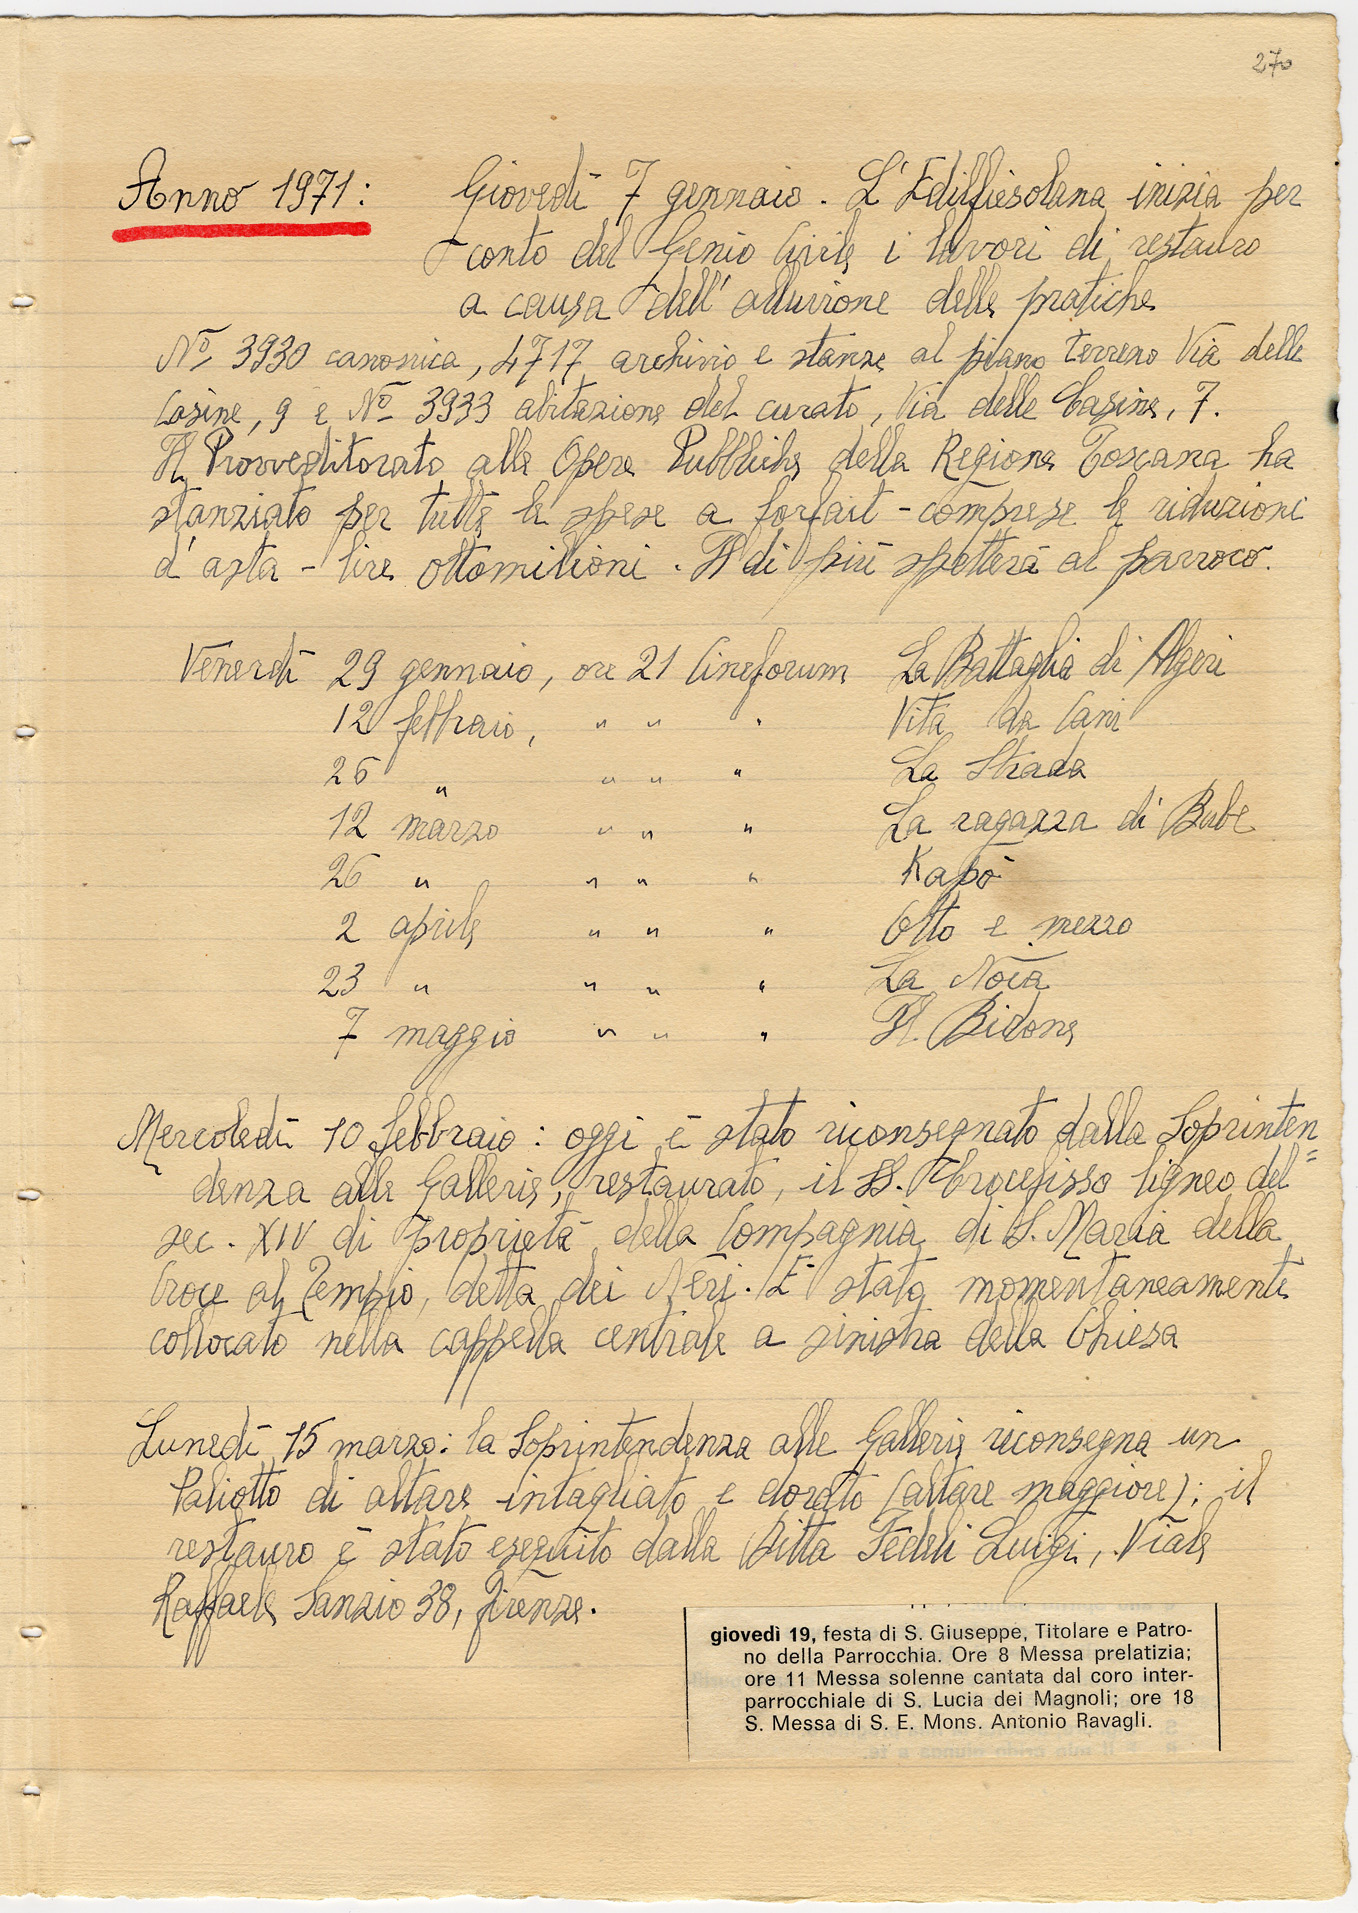 270
Anno 1971: Giovedì 7 gennaio. L'Edilfiesolana inizia per
conto del Genio Civile i lavori di restauro
a causa dell'alluvione delle pratiche
No 3930 canonica, 4717 archivio e stanze al piano terreno Via delle
Casine, 9 e No 3933 abitazione del curato, Via delle Casine, 7.
Il Provveditorato alle Opere Pubbliche della Regione Toscana ha
stanziato per tutte le spese a forfait - comprese le riduzioni
d'asta - lire ottomilioni. Il di più spetterà al parroco.
Venerdì 29 gennaio, ore 21 Cineforum La Battaglia di Algeri
12 febbraio, " " " Vita da Cani
26 " " " " La Strada
12 marzo " " " La ragazza di Bube
26 " " " " Kapò
2 aprile " " " Otto e mezzo
23 " " " " La Noia
7 maggio " " " Il Bidone
Mercoledì 10 febbraio: oggi è stato riconsegnato dalla Soprinten=
denza alle Gallerie, restaurato, il SS. Crocefisso ligneo del
sec. XIV di proprietà della Compagnia di S. Maria della
Croce al Tempio, detta dei Neri. E' stato momentaneamente
collocato nella cappella centrale a sinistra della Chiesa
Lunedì 15 marzo: la Soprintendenza alle Gallerie riconsegna un
Paliotto di altare intagliato e dorato (altare maggiore); il
restauro è stato eseguito dalla Ditta Fedeli Luigi, Viale
Raffaele Sanzio 38, Firenze.
giovedì 19, festa di S. Giuseppe, Titolare e Patro-
no della Parrocchia. Ore 8 Messa prelatizia;
ore 11 Messa solenne cantata dal coro inter-
parrocchiale di S. Lucia dei Magnoli; ore 18
S. Messa di S. E. Mons. Antonio Ravagli.